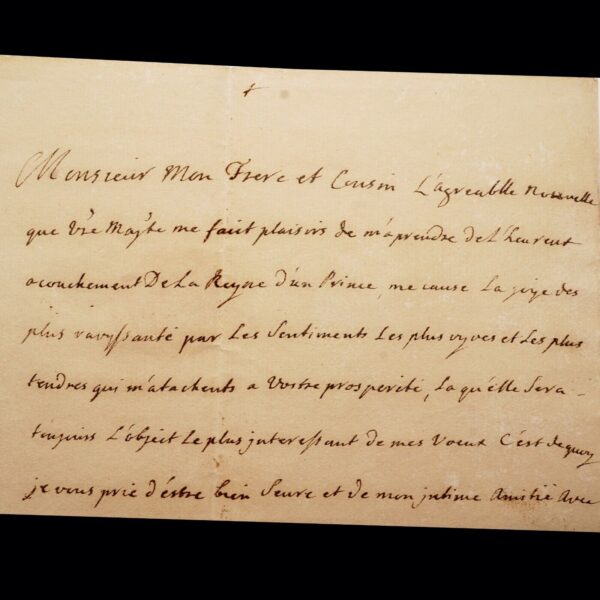 Monsieur Mon Frere et Cousin L'agreablle nouvelle
que Vre Majte me fait plaisirs de m'aprendre de L'heureux
acouchement De La Reyne d'un Prince, me cause La joye des
plus ravyssante par Les Sentiments Les plus vyves et Les plus
tendres qui m'atachents a Vostre prosperité, La qu'elle Sera
toujours L'object Le plus jnteressant de mes Voeux C'est de quoy
je vous prie d'éstre bien Seure et de mon jntime Amitié Avec